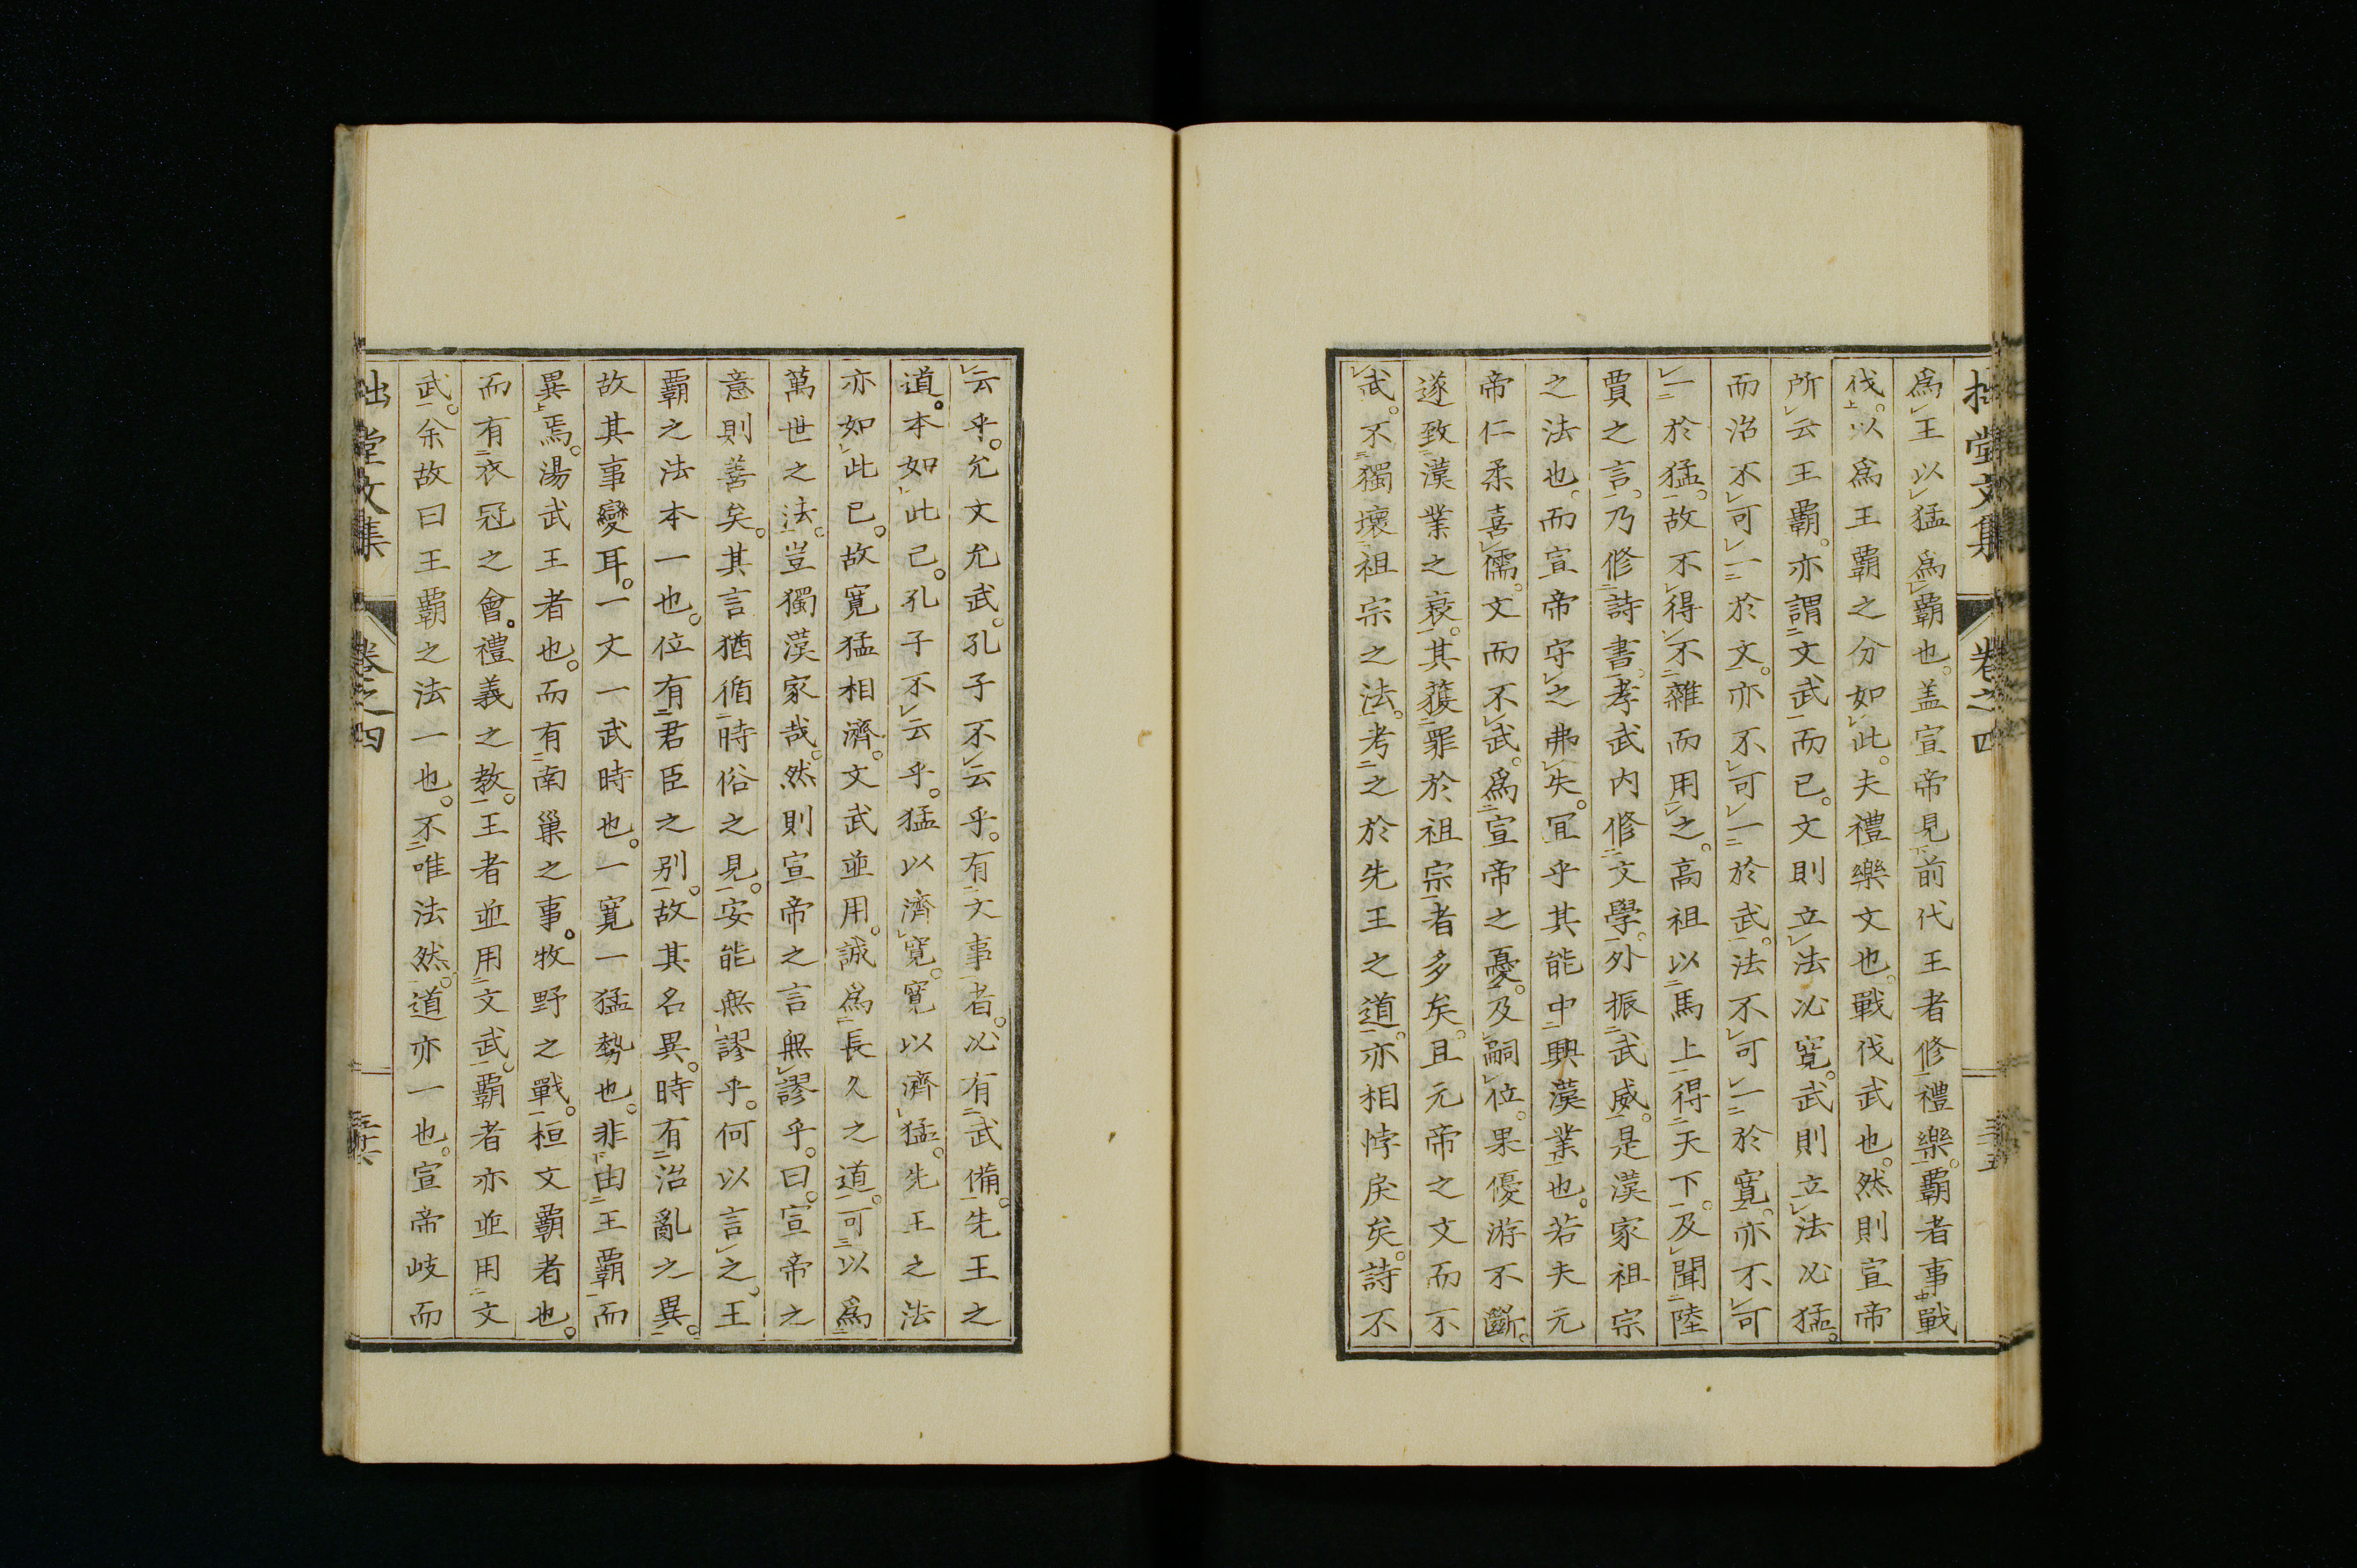 拙堂文集 卷之四
爲王以猛爲覇也。盖宣帝見前代王者修禮樂。覇者事戰
伐。以爲王覇之分如此。夫禮樂文也。戰伐武也。然則宣帝
所云王覇。亦謂文武而已。文則立法必寬。武則立法必猛。
而治不可一於文。亦不可一於武。法不可一於寬。亦不可
一於猛。故不得不雜而用之。高祖以馬上得天下。及聞陸
賈之言。乃修詩書。孝武内修文學。外振武威。是漢家祖宗
之法也。而宣帝守之弗失。冝乎其能中興漢業也。若夫元
帝仁柔喜儒。文而不武。爲宣帝之憂。及嗣位。果優游不斷。
遂致漢業之衰。其獲罪於祖宗者多矣。且元帝之文而不
武。不獨壞祖宗之法。考之於先王之道。亦相悖戾矣。詩不
云乎。允文允武。孔子不云乎。有文事者。必有武備。先王之
道。本如此已。孔子不云乎。猛以濟寬。寬以濟猛。先王之法
亦如此已。故寬猛相濟。文武並用。誠爲長久之道。可以爲
萬世之法。豈獨漢家哉。然則宣帝之言無謬乎。曰。宣帝之
意則善矣。其言猶循時俗之見。安能無謬乎。何以言之。王
覇之法本一也。位有君臣之别。故其名異。時有治亂之異。
故其事變耳。一文一武時也。一寬一猛勢也。非由王覇而
異焉。湯武王者也。而有南巢之事。牧野之戰。桓文覇者也。
而有衣冠之會。禮義之教。王者並用文武。覇者亦並用文
武。余故曰王覇之法一也。不唯法然。道亦一也。宣帝岐而
拙堂文集 卷之四